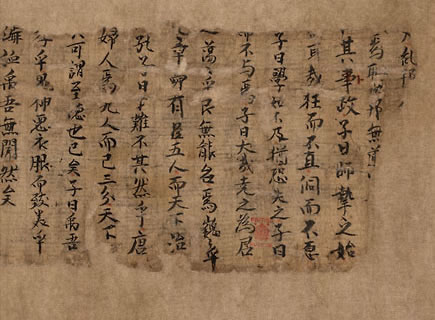 邦無道
其事政子曰師摯之始
耳哉狂而不直侗而不愿
子曰學如不及猶恐失之子曰
不与焉子曰大哉尧之為君
蕩々乎民無能名焉巍々乎
章舜有臣五人而天下治
孔子曰才難不其然乎唐
婦人焉九人而已三分天下
可謂至德也已矣子曰禹吾
孝乎鬼神恶衣服而致美乎
溝洫禹吾無間然矣